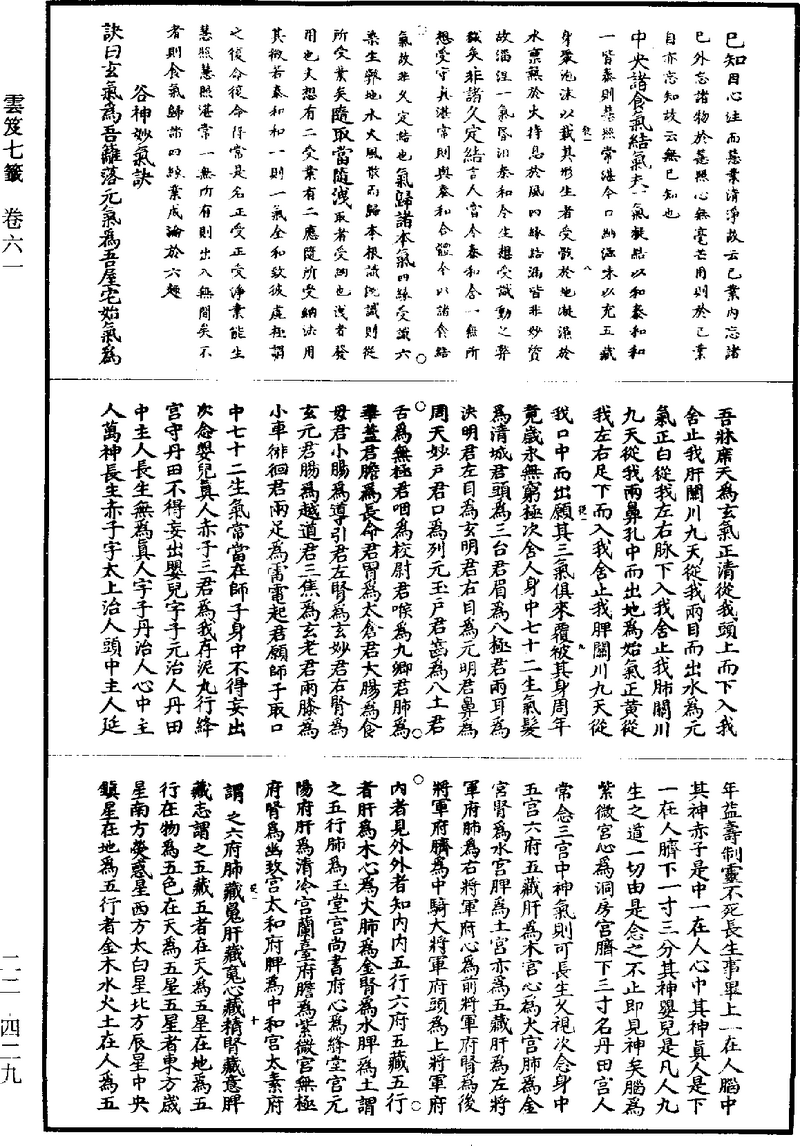 雲笈七籤 卷六一
二二 四二九
已知因心注而慧業清淨故云已業內忘諸
已外忘諸物於慧照心無毫芒用則於已業
自亦忘知故云無已知也
中央諸食氣結氣夫一氣凝結以和泰和和
一皆泰則慧照常湛今口納滋味以充五藏
身聚泡沫以載其形生者受穀於地凝濕於
水稟煖於火持息於風四緣結漏皆非妙質
故湎淫一氣昏汨泰和令生想受識動之弊
穢矣非諸久定結言人當令泰和合一無所
想受守真湛常則與泰和合體今以諸食結
氣故非久定結也氣歸諸本氣四緣受識六
染生弊地水火風散而歸本根識阮識則從
所受業矣隨取當隨洩取者受納也洩者發
用也夫想有二受業有二應隨所受納法用
其微若泰和和一則一氣全和致彼虛極謂
之復命復命得常是名正受正受淨業能生
慧照慧照湛常一無所有則出入無間矣不
者則食氣歸諸四緣業成淪於六趣
谷神妙氣訣
訣曰玄氣為吾籬落元氣為吾屋宅始氣為
吾牀席天為玄氣正清從我頭上而下入我
舍止我肝關川九天從我兩目而出水為元
氣正白從我左右脉下入我舍止我肺關川
九天從我兩鼻孔中而出地為始氣正黃從
我左右足下而入我舍止我脾關川九天從
我口中而出願其三氣俱來覆被其身周年
竟歲永無窮極次舍人身中七十二生氣髮
為清城君頭為三台君眉為八極君兩耳為
決明君左目為玄明君右目為元明君鼻為
周天妙戶君口為列元玉戶君齒為八土君
舌為無極君咽為校尉君喉為九卿君肺為
華蓋君膽為長命君胃為太倉君大腸為食
母君小腸為導引君左腎為玄妙君右腎為
玄元君腸為越道君三焦為玄老君兩膝為
小車徘徊君兩足為雷電起君願師子取口
中七十二生氣常當在師子身中不得妄出
次念嬰兒真人赤子三君為我存泥丸行絳
宮守丹田不得妄出嬰兒字子元治人丹田
中主人長生無為真人字子丹治人心中主
人萬神長生赤子字太上治人頭中主人延
年益壽制靈不死長生事畢上一在人腦中
其神赤子是中一在人心中其神真人是下
一在人臍下一寸三分其神嬰兒是凡人九
生之道一切由是念之不止即見神矣腦為
紫微宮心為洞房宮臍下三寸名丹田宮人
常念三宮中神氣則可長生久視次念身中
五宮六府五藏肝為木宮心為火宮肺為金
宮腎為水宮脾為土宮亦為五藏肝為左將
軍府肺為右將軍府心為前將軍府腎為後
將軍府臍為中騎大將軍府頭為上將軍府
內者見外外者知內內五行六府五藏五行
者肝為木心為火肺為金腎為水脾為土謂
之五行肺為玉堂宮尚書府心為絳堂宮元
陽府肝為清冷宮蘭臺府膽為紫微宮無極
府腎為幽玫宮太和府脾為中和宮太素府
謂之六府肺藏魄肝藏魂心藏精腎藏意脾
藏志謂之五藏五者在天為五星在地為五
行在物為五色在天為五星五星者東方歲
星南方熒惑星西方太白星北方辰星中央
鎮星在地為五行者金木水火土在人為五